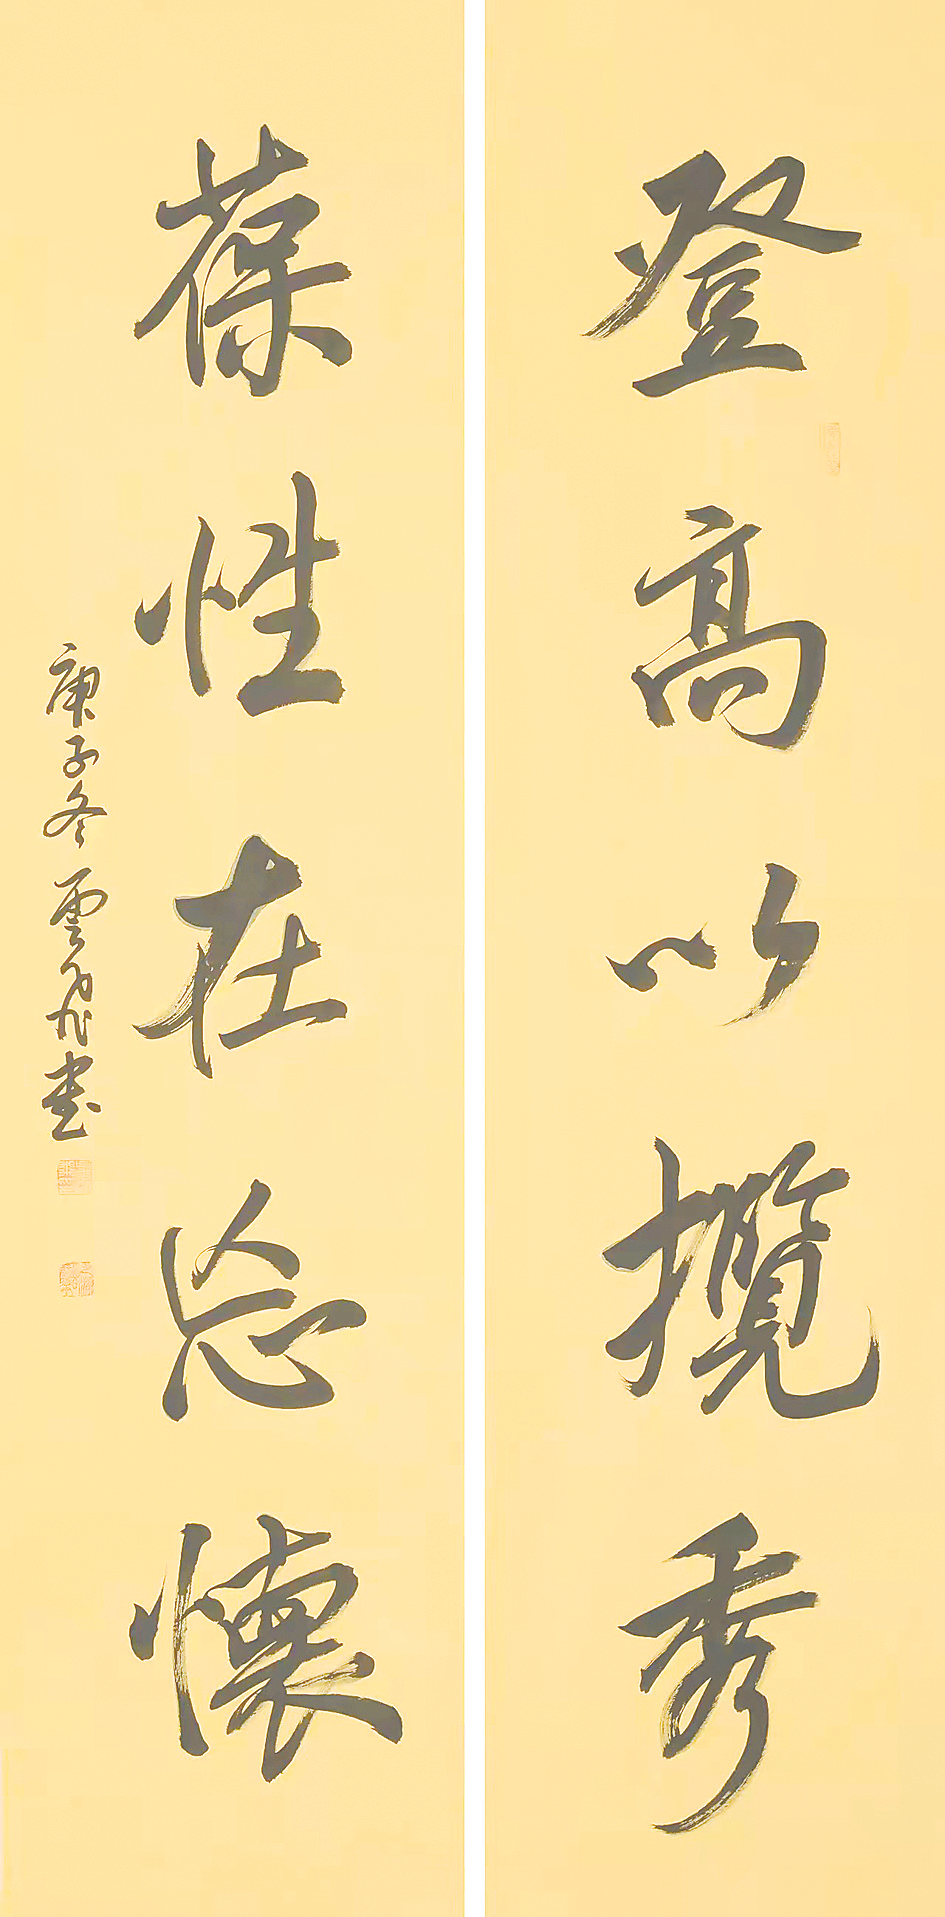 登高以攬秀
葆性在忘懷
庚子冬雲飛書